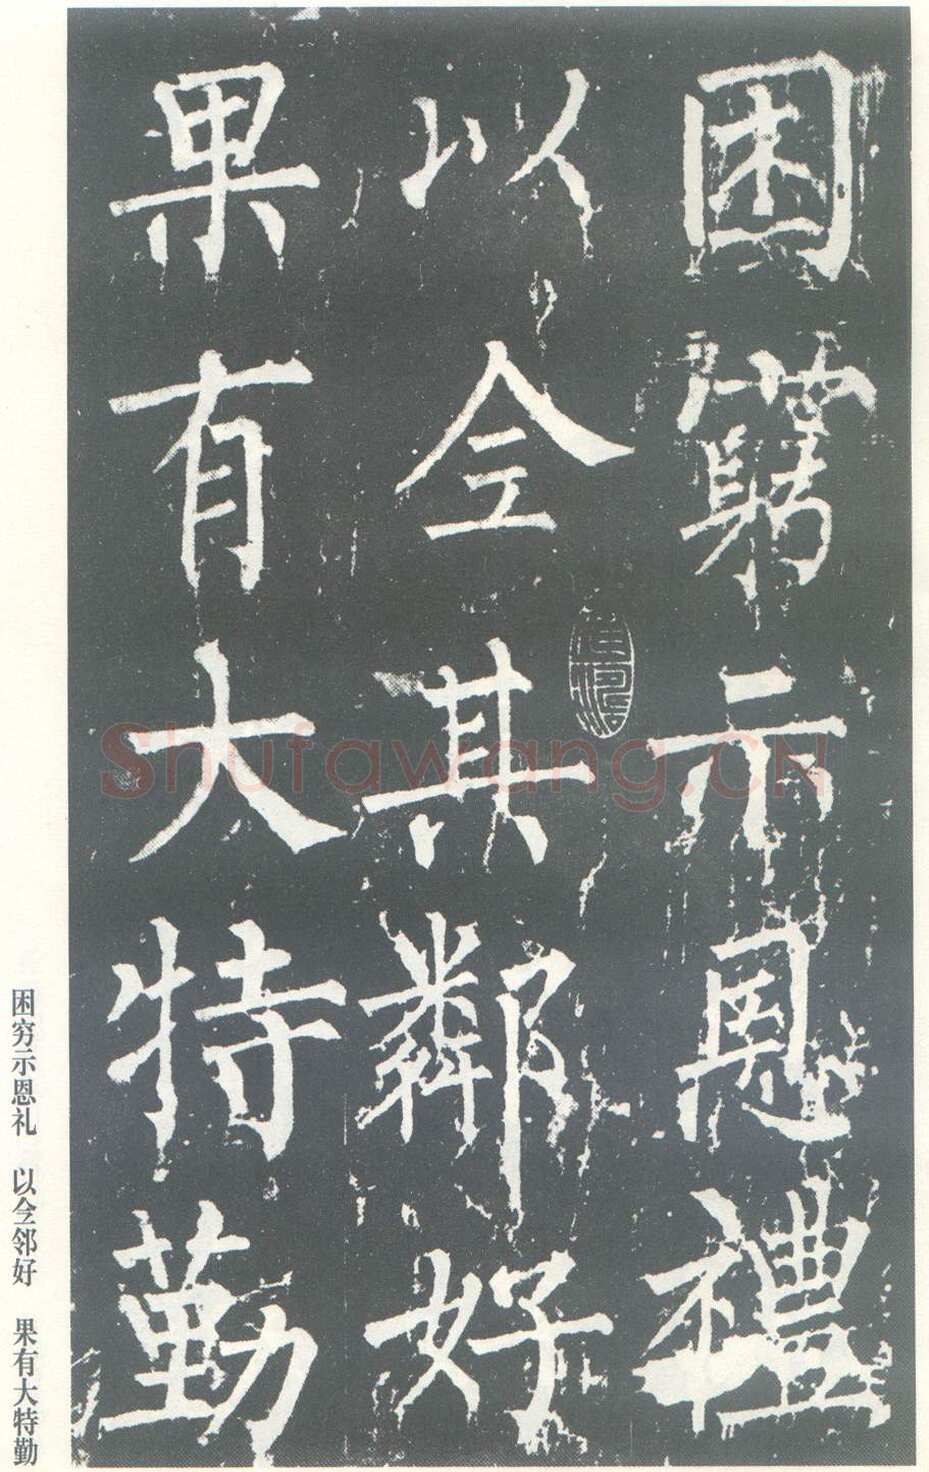 困窮示恩禮
以仝其鄰好
果有大特勤
困穷示恩礼　以仝邻好　果有大特勤
Shufawang.CN